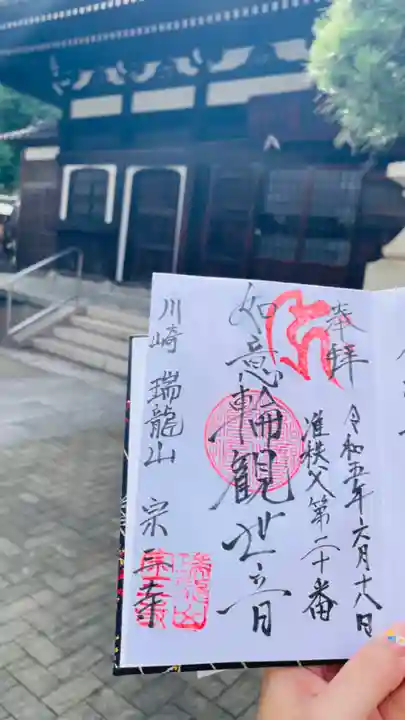 奉拝
令和五年六月十八日
准秩父第二十番
如意輪観世音
川崎 瑞龍山 宗三寺